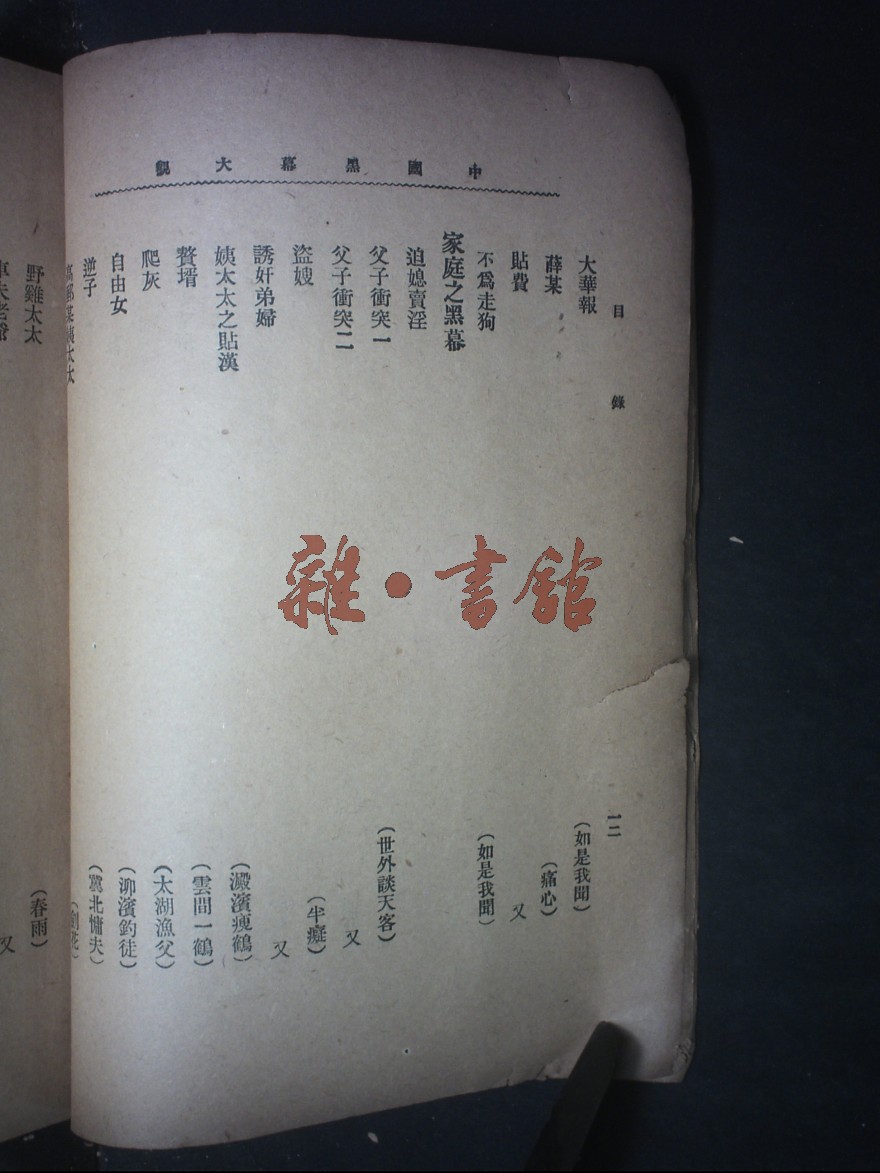 中國黑幕大觀
目錄
一二
大華報
(如是我聞)
薛某
(痛心)
貼費
又
不爲走狗
(如是我聞)
家庭之黑幕
迫媳賣淫
父子衝突一
(世外談天客)
父子衝突二
又
盜嫂
(半癡)
誘奸弟婦
又
姨太太之貼漢
(澱濱瘦鶴)
贅壻
(雲間一鶴)
爬灰
(太湖漁父)
自由女
(泖濱釣徒)
逆子
(冀北慵夫)
某姨太太
野雞太太
(春雨)
車夫老爺
又
雜·書館